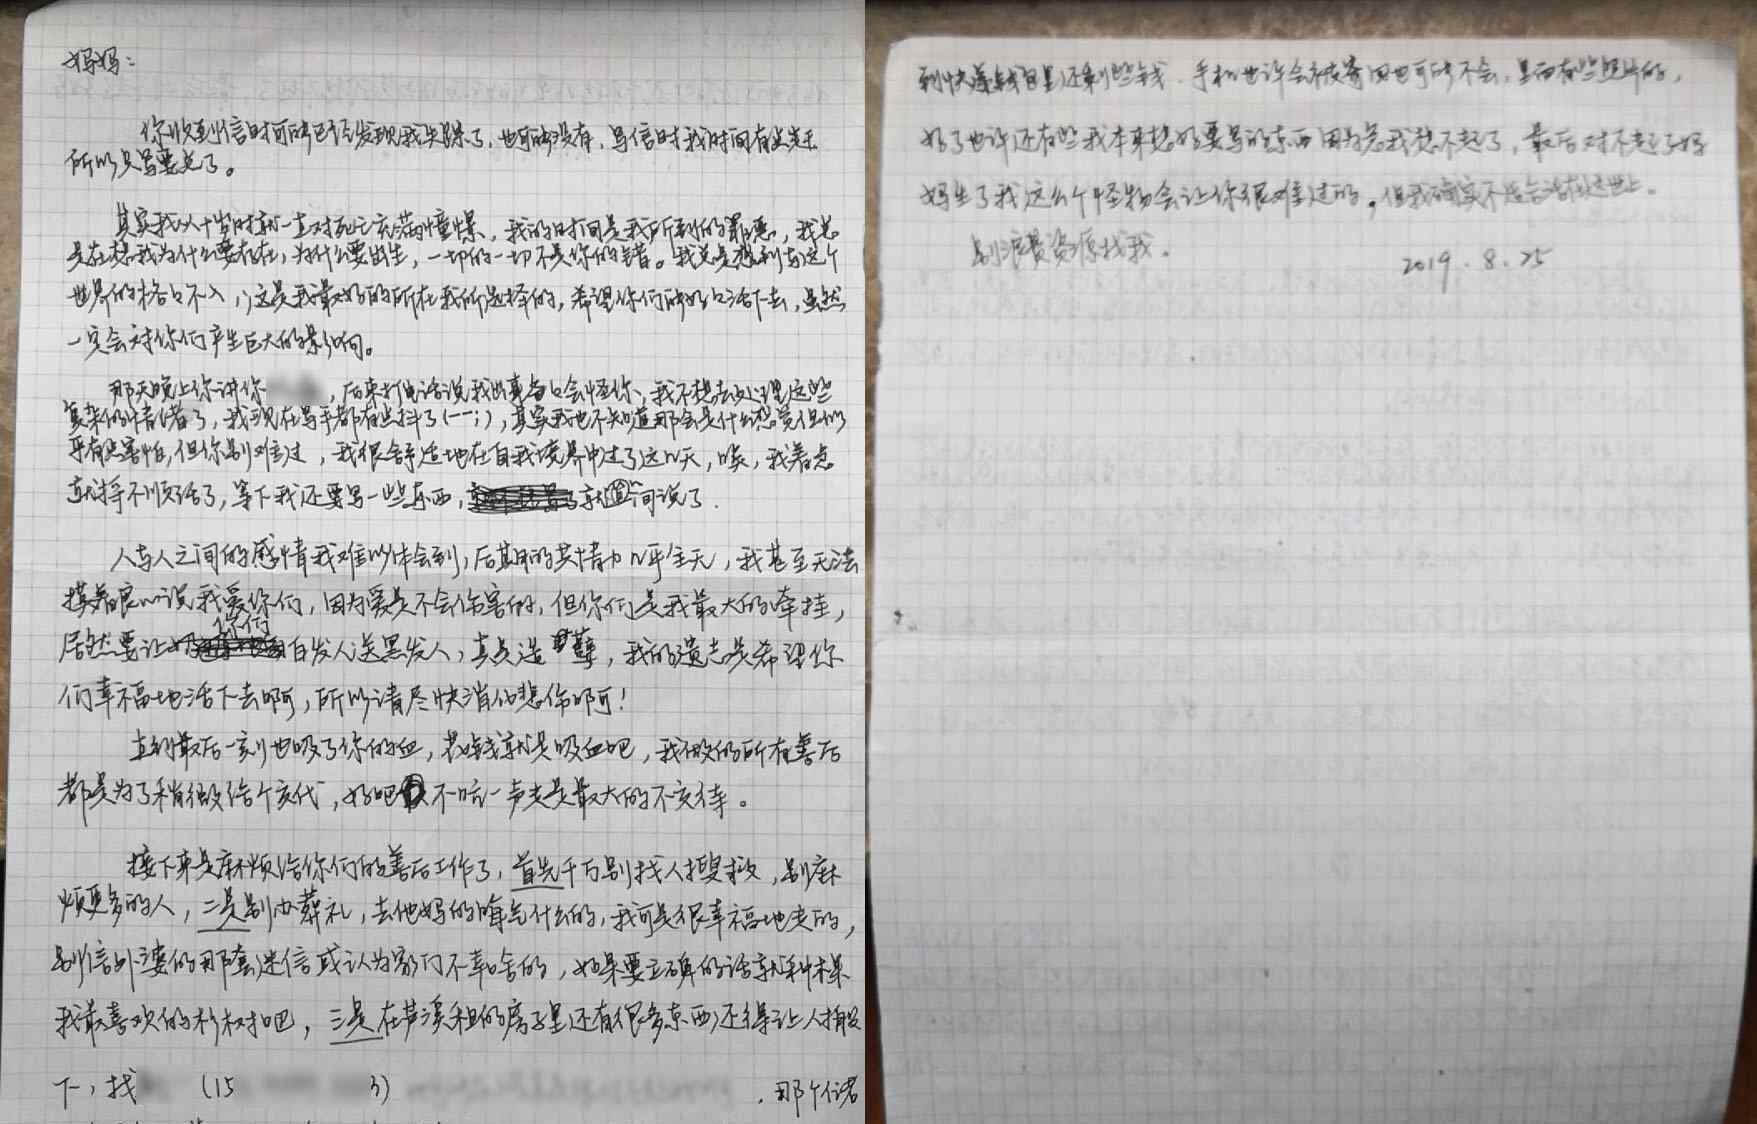 妈妈：
你收到信时可能已经发现我失踪了，也可能没有，写信时我时间有点赶
所以只写要点了。
其实我从十岁时就一直对死亡充满憧憬，我的时间是我所剩的罪恶，我总
是在想我为什么要存在，为什么要出生，一切的一切不是你的错。我总是想到与这个
世界的格格不入，这是我最好的所在我所选择的，希望你们能好好活下去，虽然
一定会对你们产生巨大的影响。
那天晚上你讲你，后来打电话说我出事爸爸会怪你，我不想去处理这些
复杂的情绪了，我现在写手都有点抖了(一一;)，其实我也不知道那会是什么感觉但似
乎有点害怕，但你别难过，我很舒适地在自我境界中过了这几天，唉，我着急
就择不顺话了，等下我还要写一些东西，就简说了.
人与人之间的感情我难以体会到，后期的共情力几乎全无，我甚至无法
摸着良心说我爱你们，因为爱是不会伤害的，但你们是我最大的牵挂，
居然要让你们白发人送黑发人，真是造孽，我的遗志是希望你
们幸福地活下去啊，所以请尽快消化悲伤啊！
直到最后一刻也吸了你的血，花钱就是吸血吧，我做的所有善后
都是为了稍微给个交代，好吧不吭一声走是最大的不交待。
接下来是麻烦给你们的善后工作了，首先千万别找人搜救，别麻
烦更多的人，二是别办葬礼，去他妈的晦气什么的，我可是很幸福地走的，
别信外婆的那套迷信或认为家门不幸啥的，如果要立碑的话就种棵
我最喜欢的杉树吧，三是在芦溪租的房子里还有很多东西，还得让人搬
下，找 (15 3) .那个住者
到快递钱包里还剩些钱，手机也许会被寄回也可能不会，里面有些照片的，
好了也许还有些我本来想好要写的东西因为急我想不起了，最后对不起了妈
妈生了我这么个怪物会让你很难过的，但我确实不适合活在这世上。
别浪费资源找我。
2019.8.25